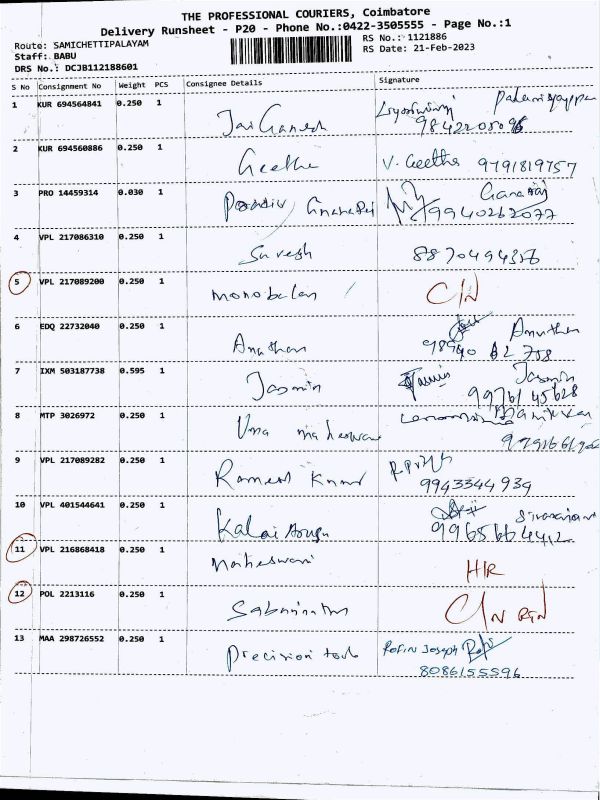 THE PROFESSIONAL COURIERS, Coimbatore
Delivery Runsheet - P20 - Phone No.:0422-3505555 - Page No.:1
Route: SAMICHETTIPALAYAM RS No.: 1121886
Staff: BABU RS Date: 21-Feb-2023
DRS No.: DCJB112188601
S No Consignment No Weight PCS Consignee Details Signature
1 KUR 694564841 0.250 1 Jai Ganesh
2 KUR 694560886 0.250 1 Geetha V. Geetha 9791819757
3 PRO 14459314 0.030 1 Ganaraj
9940262077
4 VPL 217086310 0.250 1 Suresh 8870494356
5 VPL 217089200 0.250 1 monobalan C/N
6 EDQ 22732040 0.250 1 Anuthan Anuthan
7 IXM 503187738 0.595 1 Jasmin Jasmin
9976145628
8 MTP 3026972 0.250 1 Uma maheswari
9 VPL 217089282 0.250 1 Ramesh Kumar
9943344939
10 VPL 401544641 0.250 1 Kalai
9965664412
11 VPL 216868418 0.250 1 Maheswari H/R
12 POL 2213116 0.250 1 C/N
13 MAA 298726552 0.250 1 Precision tools Rofin Joseph
8086155596